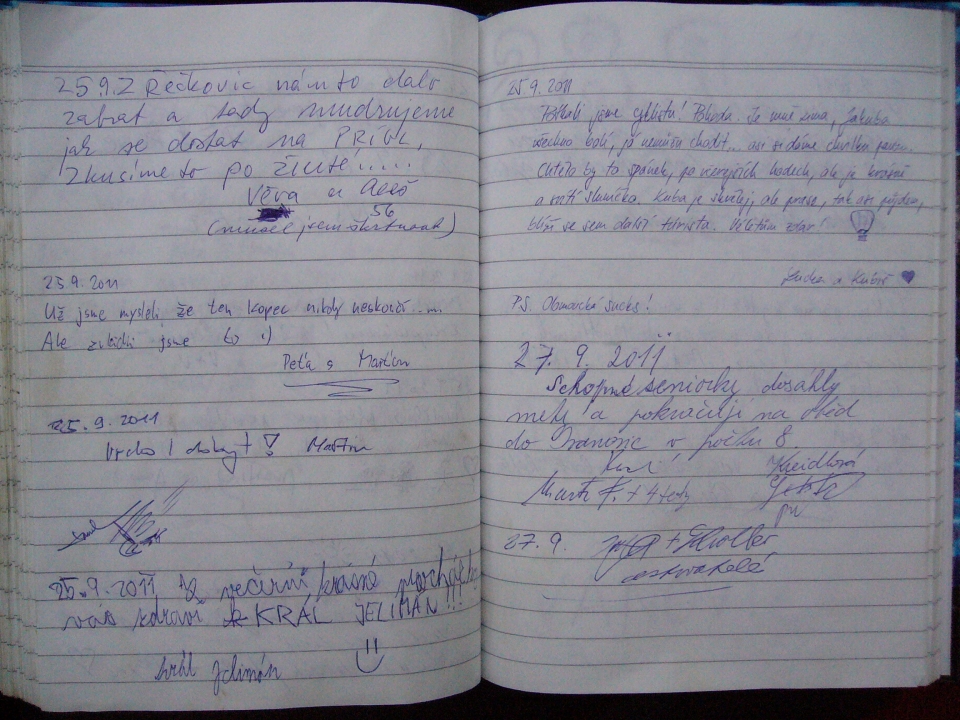 25.9. Z Řečkovic nám to dalo
zabrat a tady mudrujeme
jak se dostat na PRIGL,
zkusíme to po žluté!.....
Věra a Aleš
56
(musel jsem škrtnout)
25.9.2011
Už jsme mysleli, že ten kopec nikdy neskončí.....
Ale zvládli jsme to :)
Peťa a Martin
25.9.2011
Vrchol dobyt! Martin
25.9.2011 Z večerní krásné procházky
vás zdraví KRÁL JELIMÁN!!!
král Jelimán
25.9.2011
Potkali jsme cyklistu! Pohoda. Je mně zima, Jakuba
všechno bolí, já nemůžu chodit... asi si dáme chvilku pauzu.
Chtělo by to spánek, po včerejších hodech, ale je krásně
a svítí sluníčko. Kuba je skvělej, ale prose, tak asi půjdem,
blíží se sem další turista. Výletům zdar!
Lucka a Kubíš
P.S. Obůrecká sucks!
27.9.2011
Schopné seniorky dosáhly
mety a pokračují na oběd
do Ivanovic v počtu 8.
Kreidlová
Marta F. + 4 tety
27.9.